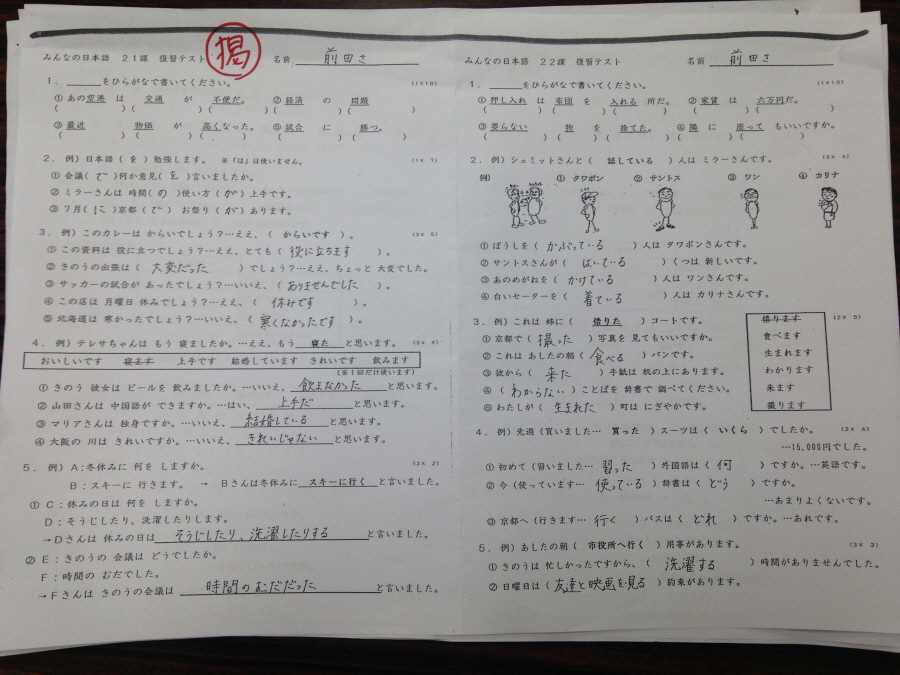 みんなの日本語 21課 復習テスト 掲 名前 前田さ
1. ______をひらがなで書いてください。 (1×10)
① あの空港 は 交通 が 不便だ。 ② 経済 の 問題
( ) ( ) ( ) ( ) ( )
③ 最近 物価 が 高くなった。 ⑤ 試合 に 勝つ。
( ) ( ) ( ) ( ) ( )
2. 例) 日本語 ( を ) 勉強します。 ※「は」は使いません。 (1× 7)
① 会議 ( で ) 何か意見 ( を ) 言いましたか。
② ミラーさんは 時間 ( の ) 使い方 ( が ) 上手です。
③ 7月 ( に ) 京都 ( で ) お祭り ( が ) あります。
3. 例) このカレーは からいでしょう?…ええ、( からいです )。 (2× 5)
① この資料は 役に立つでしょう?…ええ、とても ( 役に立ちます )。
② きのうの出張は ( 大変だった ) でしょう?…ええ、ちょっと 大変でした。
③ サッカーの試合が あったでしょう?…いいえ、( ありませんでした )。
④ この店は 月曜日 休みでしょう?…ええ、( 休みです )。
⑤ 北海道は 寒かったでしょう?…いいえ、( 寒くなかったです )。
4. 例) テレサちゃんは もう 寝ましたか。…ええ、もう 寝た と思います。 (3× 4)
おいしいです 寝ます 上手です 結婚しています きれいです 飲みます
(※1回だけ使います)
① きのう 彼女は ビールを 飲みましたか。…いいえ、飲まなかった と思います。
② 山田さんは 中国語が できますか。…はい、上手だ と思います。
③ マリアさんは 独身ですか。…いいえ、結婚している と思います。
④ 大阪の 川は きれいですか。…いいえ、きれいじゃない と思います。
5. 例) A:冬休みに 何を しますか。 (3× 2)
B:スキーに 行きます。 → Bさんは冬休みに スキーに行く と言いました。
① C:休みの日は 何を しますか。
D:そうじしたり、洗濯したりします。
→Dさんは 休みの日は そうじしたり、洗濯したりする と言いました。
② E:きのうの 会議は どうでしたか。
F:時間の むだでした。
→Fさんは きのうの会議は 時間のむだだった と言いました。
みんなの日本語 22課 復習テスト 名前 前田さ
1. ______をひらがなで書いてください。 (1×10)
① 押し入れ は 布団 を 入れる 所だ。 ② 家賃 は 六万円だ。
( ) ( ) ( ) ( ) ( )
③ 要らない 物 を 捨てた。 ④ 隣 に 座って もいいですか。
( ) ( ) ( ) ( ) ( )
2. 例) シュミットさんと ( 話している ) 人は ミラーさんです。 (2× 4)
例) ① タワポン ② サントス ③ ワン ④ カリナ
① ぼうしを ( かぶっている ) 人は タワポンさんです。
② サントスさんが ( はいている ) くつは 新しいです。
③ あのめがねを ( かけている ) 人は ワンさんです。
④ 白いセーターを ( 着ている ) 人は カリナさんです。
3. 例) これは 姉に ( 借りた ) コートです。 (2× 5)
① 京都で ( 撮った ) 写真を 見てもいいですか。
② これは あしたの朝 ( 食べる ) パンです。
③ 彼から ( 来た ) 手紙は 机の上にあります。
④ ( わからない ) ことばを 辞書で 調べてください。
⑤ わたしが ( 生まれた ) 町は にぎやかです。
借ります
食べます
生まれます
わかります
来ます
撮ります
4. 例) 先週 (買いました… 買った ) スーツは ( いくら ) でしたか。 (2× 6)
…15,000円でした。
① 初めて (習いました… 習った ) 外国語は ( 何 ) ですか。…英語です。
② 今 (使っています… 使っている ) 辞書は ( どう ) ですか。
…あまりよくないです。
③ 京都へ (行きます… 行く ) バスは ( どれ ) ですか。…あれです。
5. 例) あしたの朝 ( 市役所へ行く ) 用事があります。 (3× 2)
① きのうは 忙しかったですから、( 洗濯する ) 時間がありませんでした。
② 日曜日は ( 友達と映画を見る ) 約束があります。